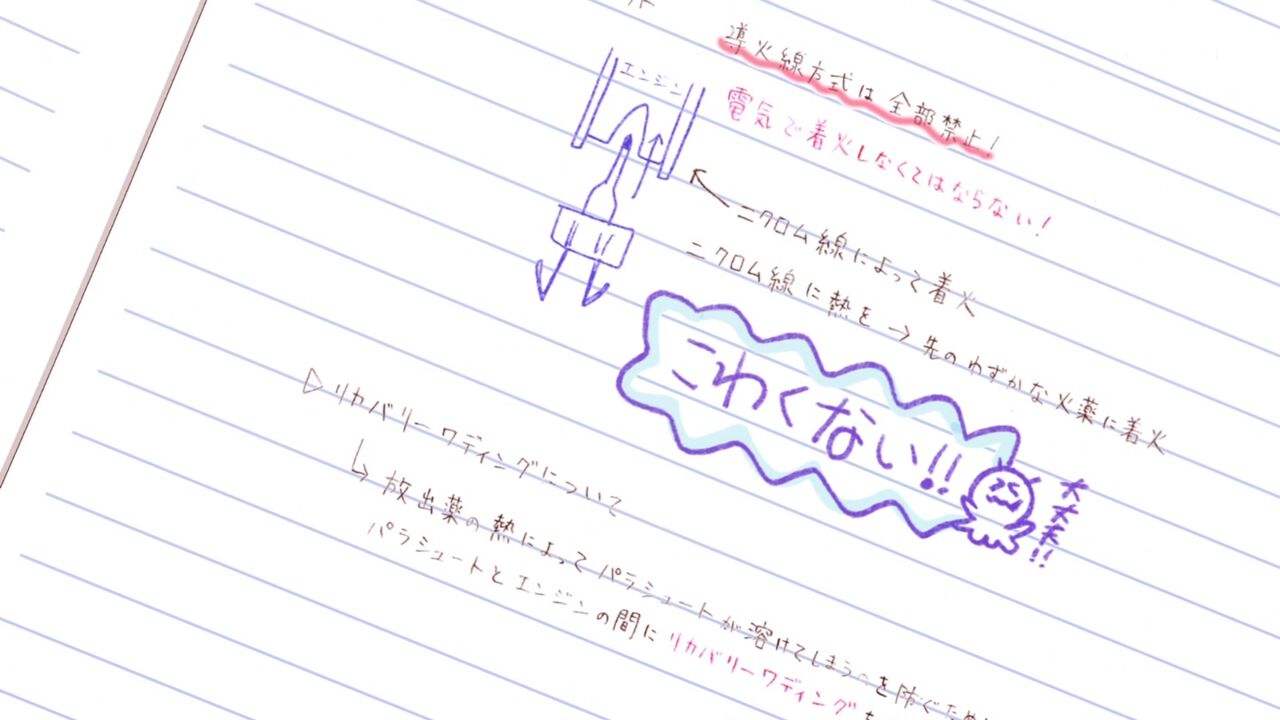 導火線方式は全部禁止!
電気で着火しなくてはならない!
エンジン
ニクロム線によって着火
ニクロム線に熱を→先のわずかな火薬に着火
こわくない!!
大丈夫!!
▷リカバリーワディングについて
↳放出薬の熱によってパラシュートが溶けてしまうのを防ぐため
パラシュートとエンジンの間にリカバリーワディングを